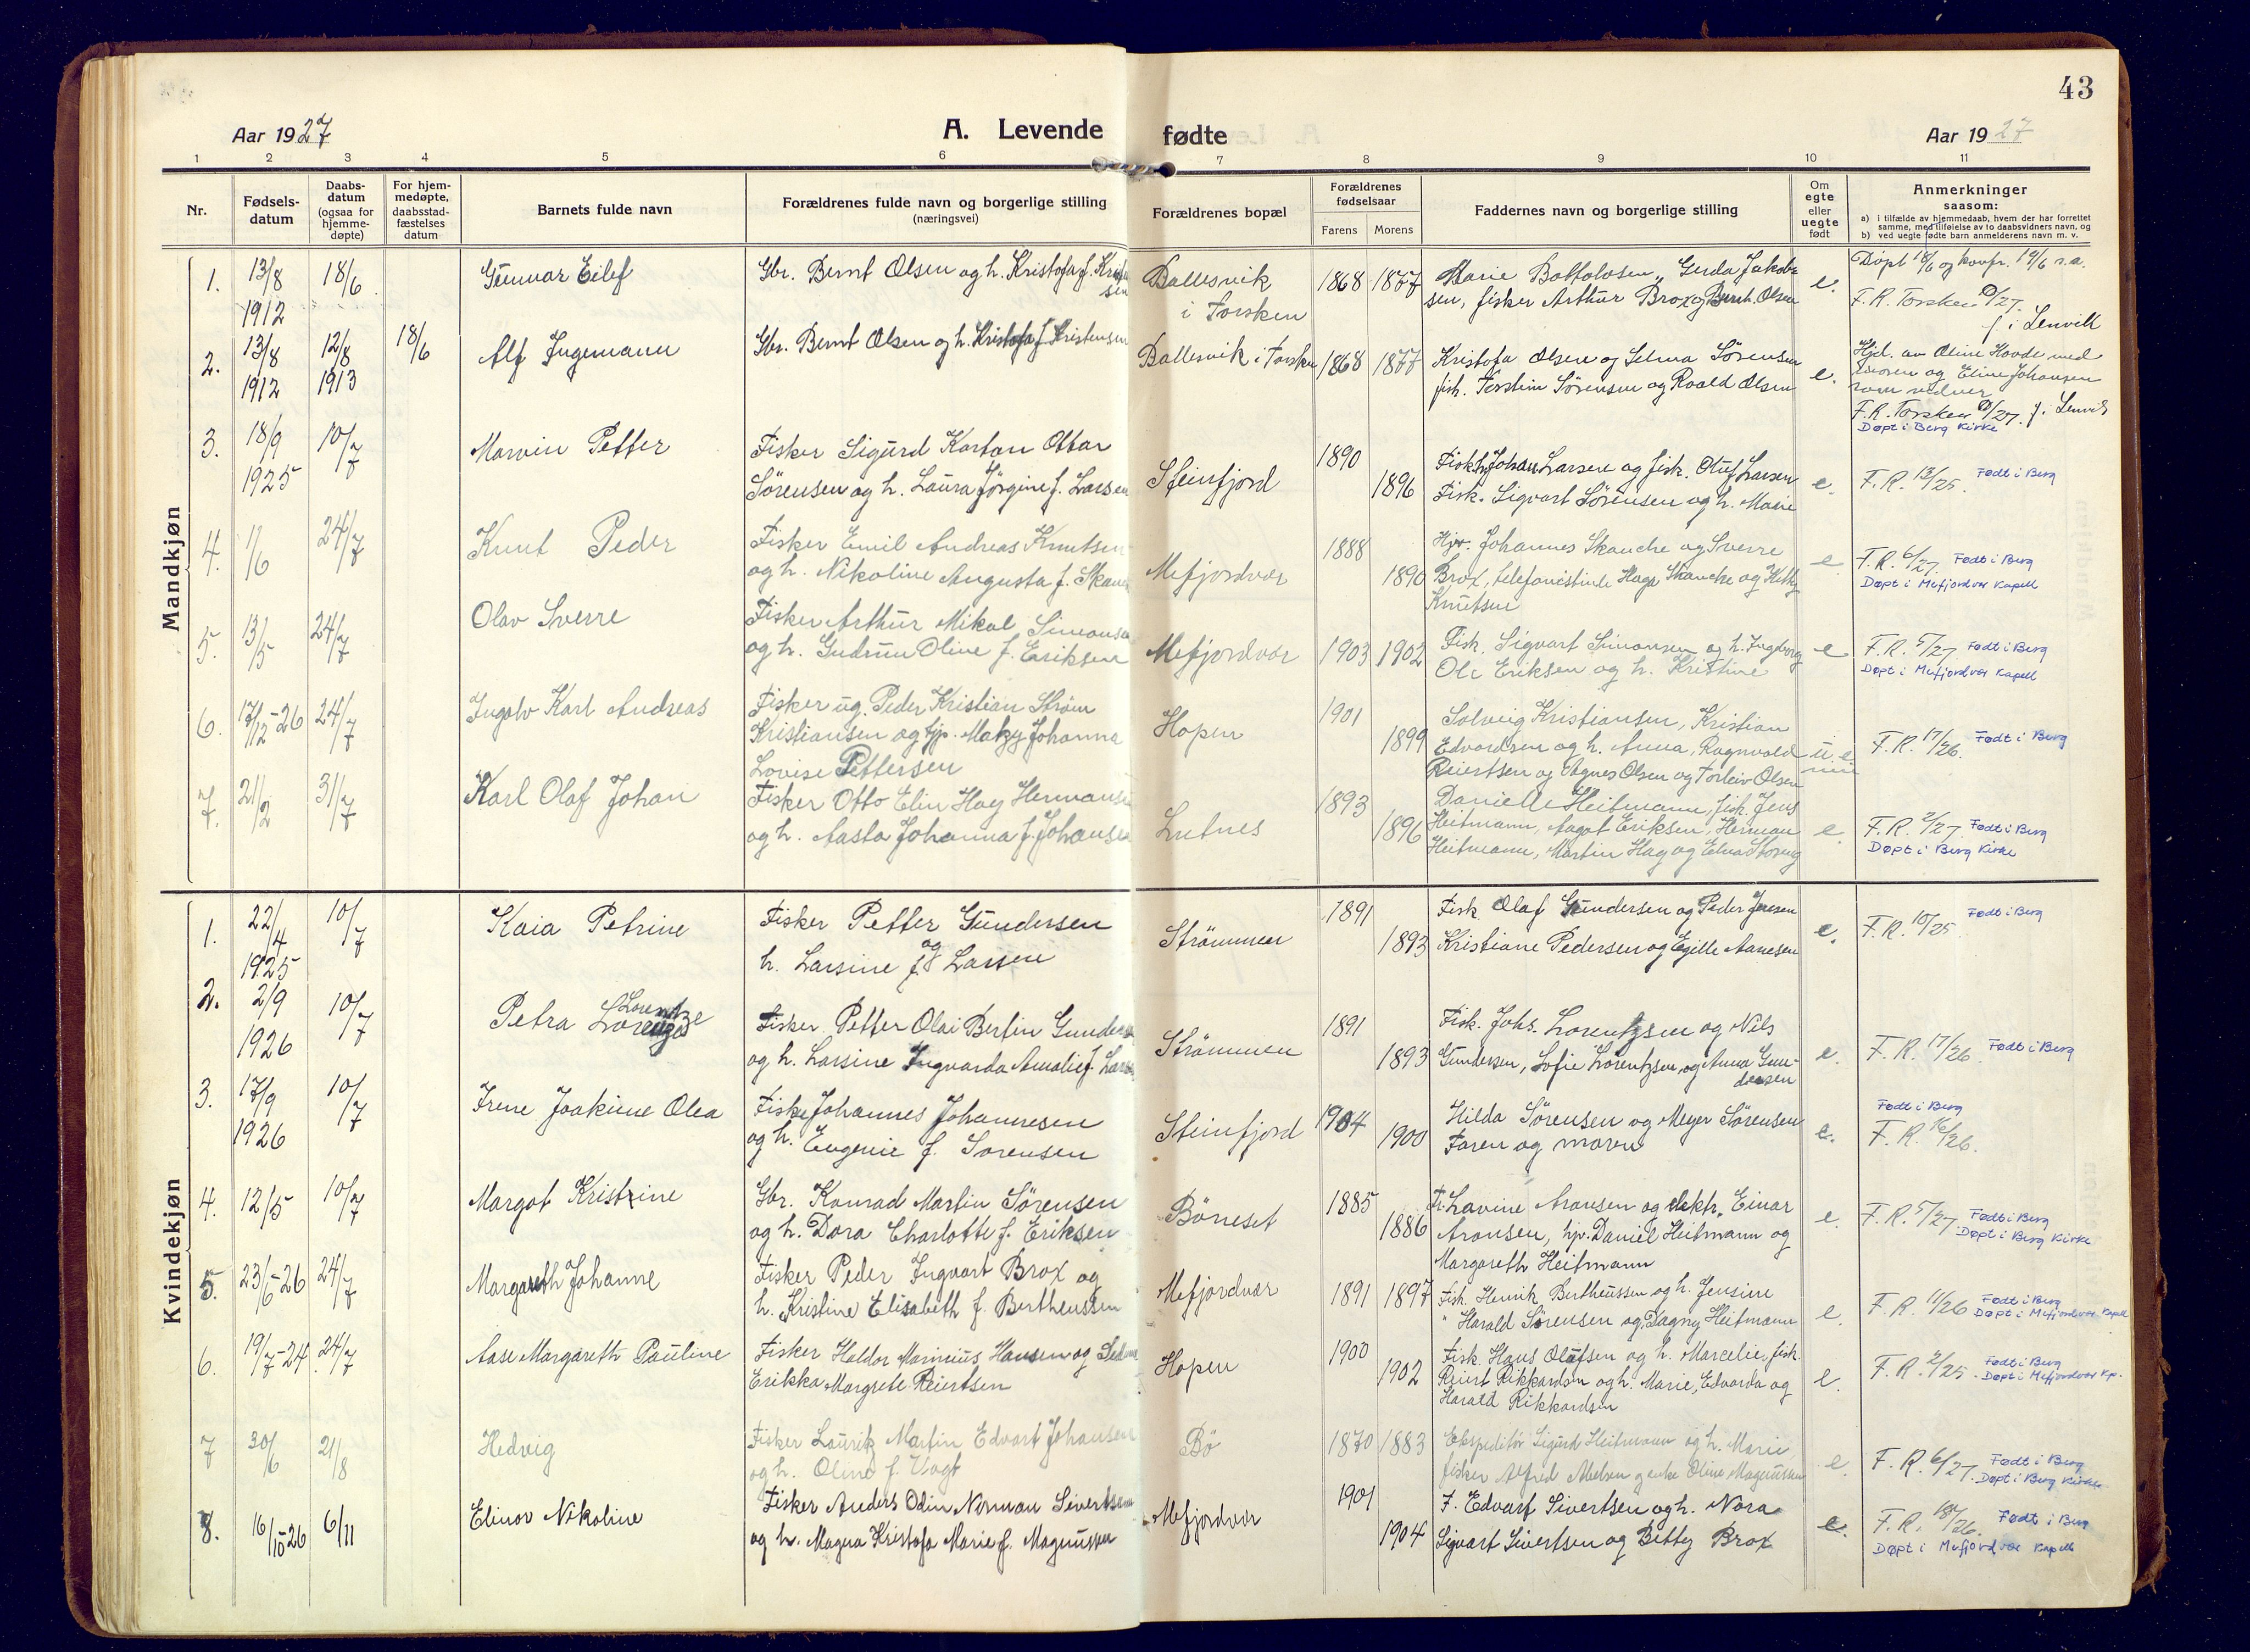 43
Aar 1927
A. Levende fødte
Aar 1927
1 2 3 4 5 6 7 8 9 10 11
Nr.
Fødsels-
datum
Daabs-
datum
(ogsaa for
hjemme-
døpte)
For hjem-
medøpte,
daabsstad-
fæstelses
datum
Barnets fulde navn
Forældrenes fulde navn og borgerlige stilling
(næringsvei)
Forældrenes bopæl
Forældrenes
fødselsaar
Farens Morens
Faddernes navn og borgerlige stilling
Om
egte
eller
uegte
født
Anmerkninger
saasom:
a) i tilfælde av hjemmedaab, hvem der har forrettet
samme, med tilføielse av to daabsvidners navn, og
b) ved uegte fødte barn anmelderens navn m. v.
Mandkjøn
1. 13/8 1912
18/6
Gunnar Eilef
Gbr. Bernt Olsen og h. Kristofa f. Kristen
sen
Ballesvik
i Torsken
1868 1877
Marie Bottolvsen, Gerda Jakob
sen, fisker Arthur Brox og Bernh. Olsen
e.
Døpt 18/6 og konfr. 19/6 s.a.
F.R. Torsken /27.
f. i Lenvik
2. 13/8 1912
12/8 1913
18/6
Alf Ingemann
Gbr. Bernt Olsen og h. Kristofa f. Kristensen
Ballesvik i Torsken
1868 1877
Kristofa Olsen og Selma Sørensen
fisk. Torstein Sørensen og Roald Olsen
e.
Hjd. av Oline Hovde med
moren og Eline Johansen
som vidner
F.R. Torsken /27. f. i Lenvik
Døpt i Berg Kirke
3. 18/9 1925
10/7
Marvin Petter
Fisker Sigurd Kartan Ottar
Sørensen og h. Laura Jørgine f. Larsen
Steinfjord
1890 1896
Fisk. Johan Larsen og fisk. Oluf Larsen
Fisk. Sigvart Sørensen og h. Marie
e.
F.R. 13/25. Født i Berg
4. 1/6
24/7
Knut Peder
Fisker Emil Andreas Knutsen
og h. Nikoline Augusta f. Skan
Mefjordvær
1888 1890
Hjv. Johannes Skancke og Sverre
Brox, telefonistinde Haga Skancke og Hetty
Knutsen
e
F.R. 6/27. Født i Berg
Døpt i Mefjordvær Kapell
5. 13/5
24/7
Olav Sverre
Fisker Arthur Mikal Simonsen
og h. Gudrun Oline f. Eriksen
Mefjordvær
1903 1902
Fisk. Sigvart Simonsen og h. Ingeborg
Ole Eriksen og h. Kristine
e
F.R. 5/27. Født i Berg
Døpt i Mefjordvær Kapell
6. 17/12-26
24/7
Ingolv Karl Andreas
Fisker ug. Peder Kristian Strøm
Kristiansen og tjp. Makzy Johanna
Lovise Pettersen
Hopen
1901 1899
Solveig Kristiansen, Kristian
Edvardsen og h. Anna, Ragnvald
Reiertsen og Agnes Olsen og Torleiv Olsen
u.e.
F.R. 17/26. Født i Berg
7. 21/2
31/7
Karl Olaf Johan
Fisker Otto Elin Hag Hermansen
og h. Aasta Johanna f. Johansen
Lutnes
1893 1896
Danielle Heitmann, fisk. Jens
Heitmann, Aagot Eriksen, Herman
Heitmann, Martin Hag og Edna Storeng
e
F.R. 2/27. Født i Berg
Døpt i Berg Kirke
Kvindekjøn
1. 22/4 1925
10/7
Kaia Petrine
Fisker Petter Gundersen
og
h. Larsine f. Larsen
Strømmen
1891 1893
Fisk Olaf Gundersen og Peder Jensen
Kristiane Pedersen og Egille Aanesen
e.
F.R. 10/25. Født i Berg
2. 2/9 1926
10/7
Petra Lorentze
Fisker Petter Olai Bertin Gundersen
og h. Larsine Ingvarda Amalie f. Larsen
Strømmen
1891 1893
Fisk. Johs. Lorentzsen og Nils
Gundersen, Sofie Lorentzsen, og Anna Gun-
dersen
e.
F.R. 17/26. Født i Berg
3. 17/9 1926
10/7
Irene Joakime Olea
Fisker Johannes Johannesen
og h. Eugenie f. Sørensen
Steinfjord
1904 1900
Hilda Sørensen og Meyer Sørensen
Faren og moren
e.
Født i Berg
F.R. 16/26.
4. 12/5
10/7
Margot Kristine
Gbr. Konrad Martin Sørensen
og h. Dora Charlotte f. Eriksen
Bøneset
1885 1886
Fr. Lavine Aronsen og elektr. Einar
Aronsen, hjv. Daniel Heitmann og
Margareth Heitmann
e.
F.R. 5/27. Født i Berg
Døpt i Berg Kirke
5. 23/6-26
24/7
Margareth Johanne
Fisker Peder Ingvart Brox og
h. Kristine Elisabeth f. Bertheussen
Mefjordvær
1891 1897
Fisk. Henrik Bertheussen og h. Jensine
" Harald Sørensen og Dagny Heitmann
e.
F.R. 11/26 Født i Berg
Døpt i Mefjordvær Kapell
6. 19/7-24
24/7
Aase Margareth Pauline
Fisker Haldor Marinius Hansen og
Erikka Margrete Reiertsen
Hopen
1900 1902
Fisk. Hans Olufsen og h. Marcelie, fisk.
Reiert Rikkardsen og h. Marie, Edvarda og
Harald Rikkardsen
e.
F.R. 2/25. Født i Berg
Døpt i Mefjordvær Kp.
7 30/6
21/8
Hedvig
Fisker Lauritz Martin Edvart Johansen
og h. Oline f. Vogt
Bø
1870 1883
Ekspeditør Sigurd Heitmann og h. Marie,
fisker Alfred Abelsen g enke Oline Magnussen
e.
F.R. 6/27. Født i Berg
Døpt i Berg Kirke
8. 16/10 26
6/11
Elinor Nikoline
Fisker Anders Odin Norman Sivertsen
og h. Magna Kristofa Marie f. Magnussen
Mefjordvær
1901 1904
F. Edvart Sivertsen og h. Nora
Sigvart Sivertsen og Betty Brox
e.
F.R. 18/26. Født i Berg
Døpt i Mefjordvær Kapell